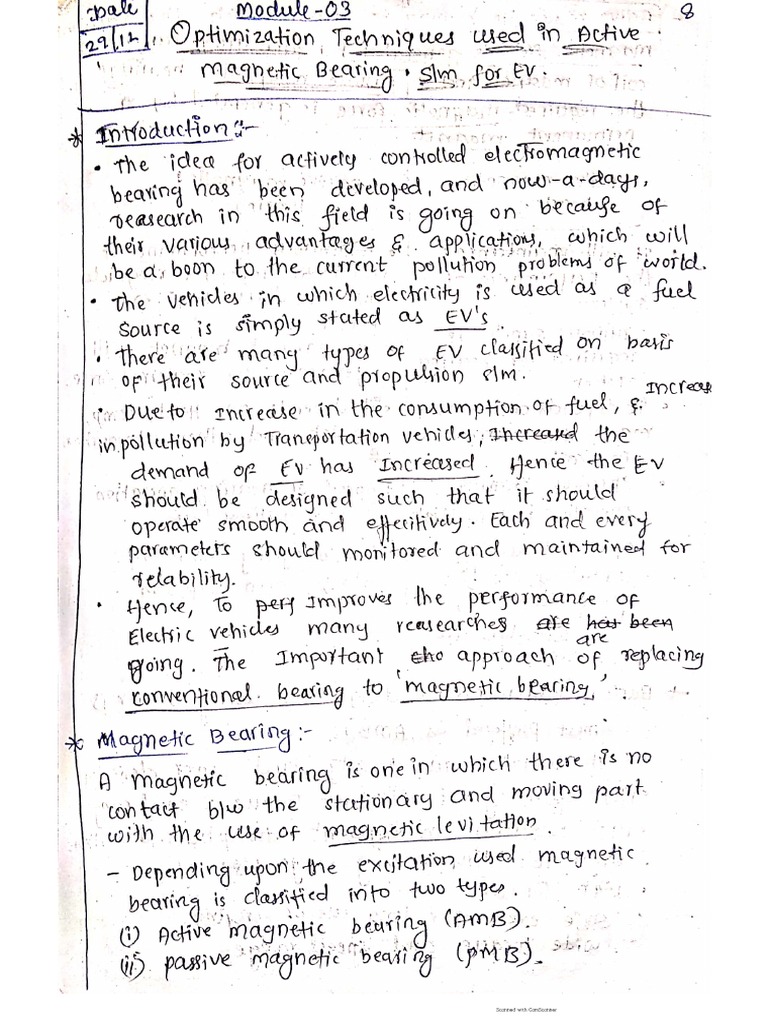 Date
Module-03
8
29/12
Optimization Techniques used in Active
magnetic Bearing. s/m for EV.
* Introduction :-
• The idea for actively controlled electromagnetic
bearing has been developed, and now-a-days,
reasearch in this field is going on because of
their various advantages & applications, which will
be a boon to the current pollution problems of world.
• The vehicles in which electricity is used as a fuel
source is simply stated as EV's.
• There are many types of EV classified on basis
of their source and propulsion s/m.
• Due to increase in the consumption of fuel, & Increase
in pollution by Transportation vehicles, Increased the
demand of EV has Increased. Hence the EV
should be designed such that it should
operate smooth and effecitively. Each and every
parameters should monitored and maintained for
relability.
• Hence, To perf Improves the performance of
Electric vehicles many reasearches are has been
are
going. The Important the approach of replacing
conventional bearing to 'magnetic bearing'.
* Magnetic Bearing :-
A magnetic bearing is one in which there is no
contact b/w the stationary and moving part
with the use of magnetic levitation.
- Depending upon the excitation used magnetic
bearing is classified into two types.
(i) Active magnetic bearing (AMB).
(ii) passive magnetic bearing (PMB).
Scanned with CamScanner